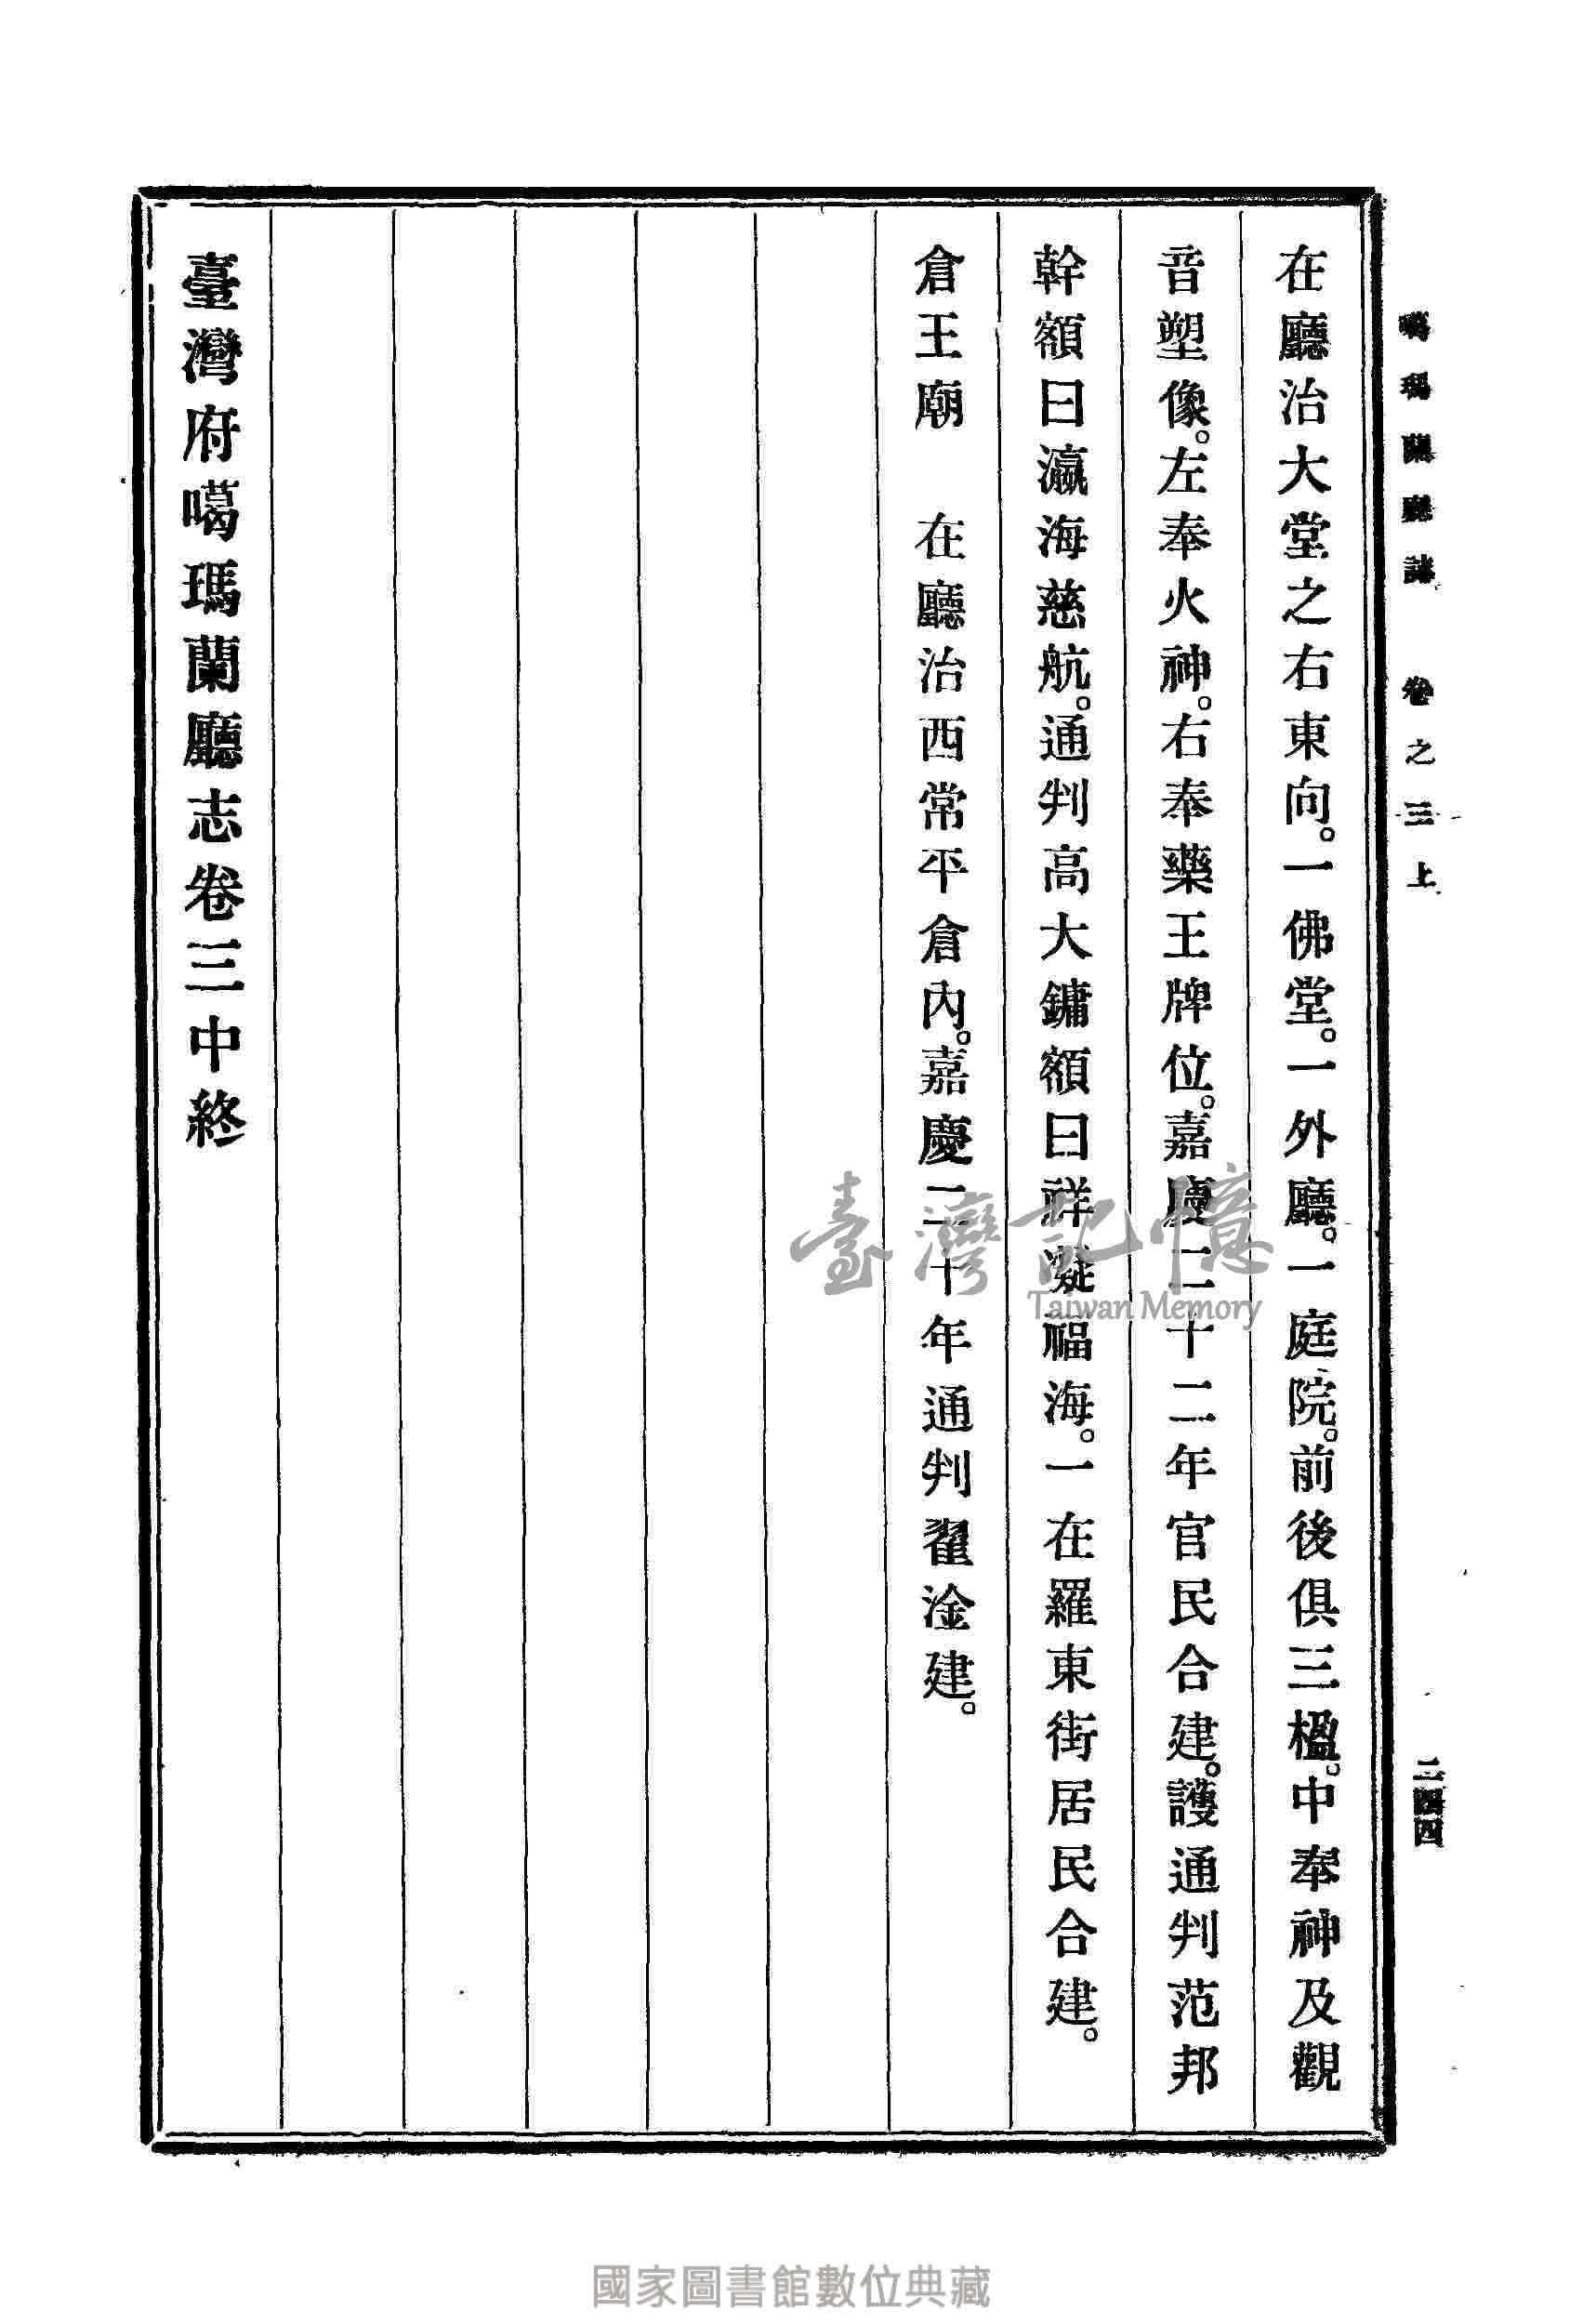 噶瑪蘭廳誌 卷之三上 二四四
在廳治大堂之右東向。一佛堂。一外廳。一庭院。前後俱三楹。中奉神及觀
音塑像。左奉火神。右奉藥王牌位。嘉慶二十二年官民合建。護通判范邦
幹額曰瀛海慈航。通判高大鏞額曰祥凝福海。一在羅東街居民合建。
倉王廟 在廳治西常平倉內。嘉慶二十年通判翟淦建。
臺灣府噶瑪蘭廳志卷三中終
臺灣記憶
Taiwan Memory
國家圖書館數位典藏